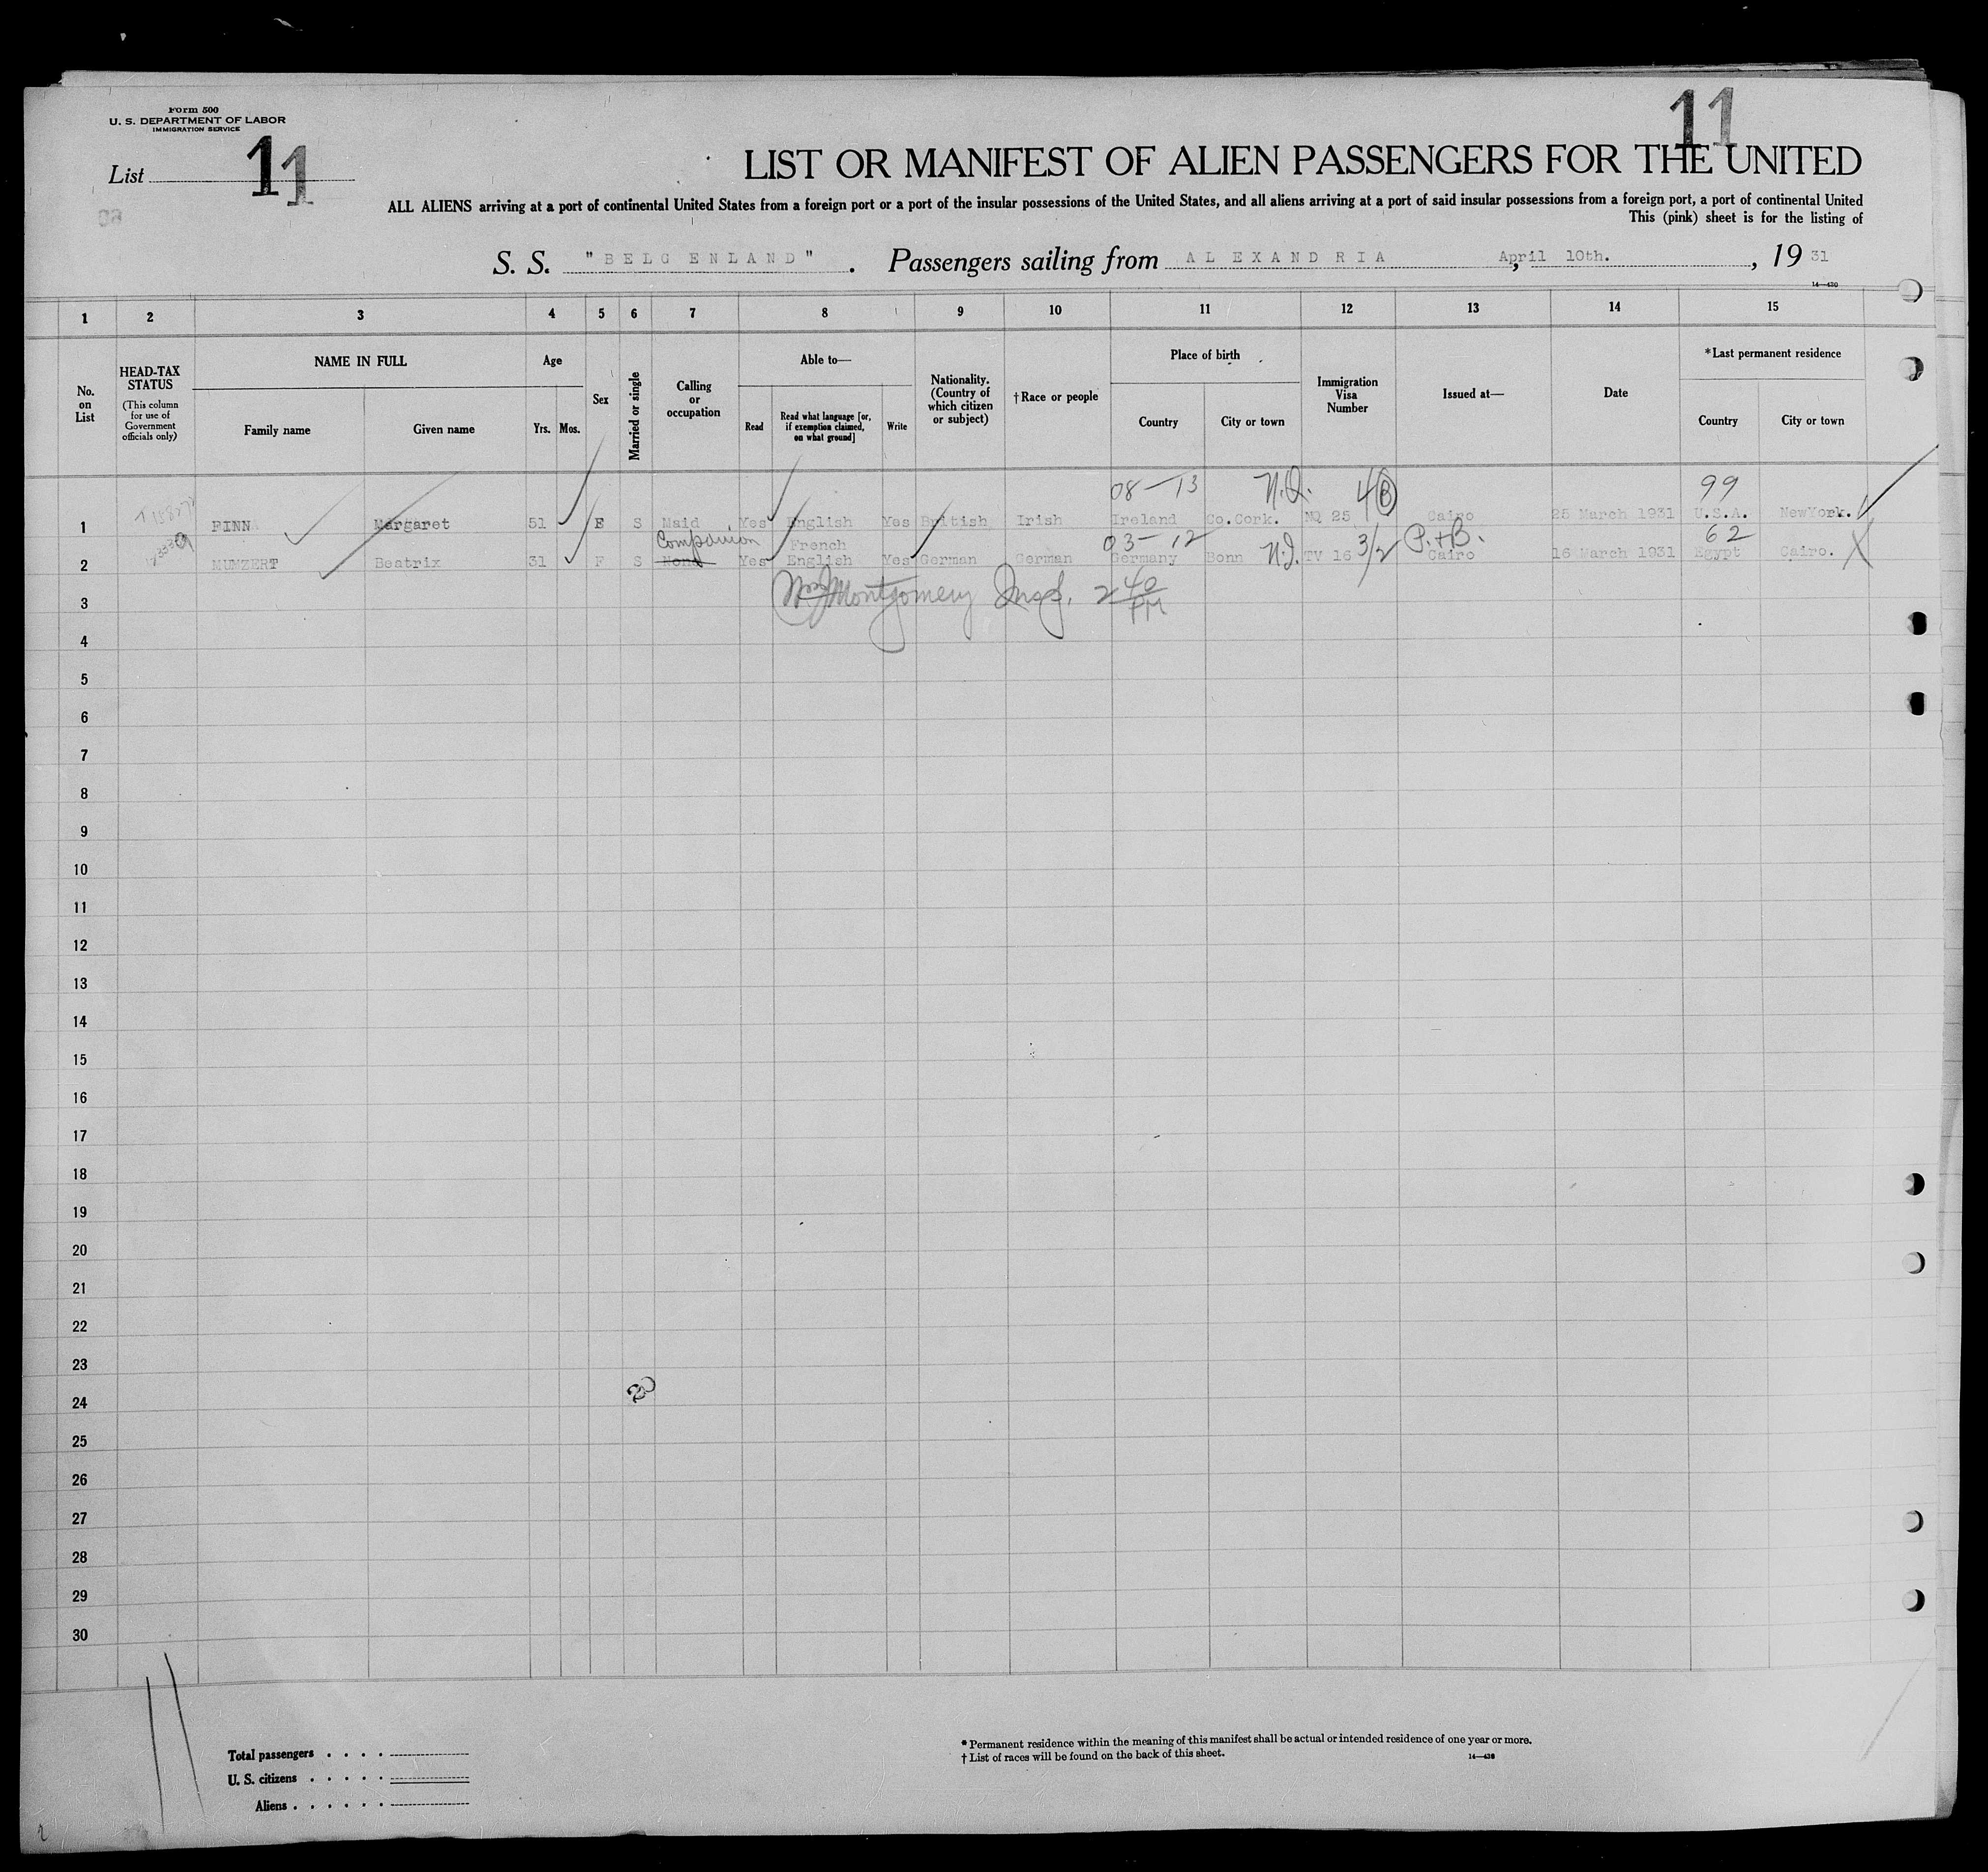 Form 500
U. S. DEPARTMENT OF LABOR
IMMIGRATION SERVICE
List 11
11
LIST OR MANIFEST OF ALIEN PASSENGERS FOR THE UNITED
ALL ALIENS arriving at a port of continental United States from a foreign port or a port of the insular possessions of the United States, and all aliens arriving at a port of said insular possessions from a foreign port, a port of continental United
This (pink) sheet is for the listing of
S. S. "BELGENLAND". Passengers sailing from ALEXANDRIA, April 10th., 1931
14—430
1 2 3 4 5 6 7 8 9 10 11 12 13 14 15
No. on List
HEAD-TAX STATUS
(This column for use of Government officials only)
NAME IN FULL
Family name Given name
Age
Yrs. Mos.
Sex
Married or single
Calling or occupation
Able to—
Read
Read what language [or, if exemption claimed, on what ground]
Write
Nationality. (Country of which citizen or subject)
†Race or people
Place of birth
Country City or town
Immigration Visa Number
Issued at—
Date
*Last permanent residence
Country City or town
08—13 N.Q. 4(B) 99
1 FINN Margaret 51 F S Maid Yes English Yes British Irish Ireland Co.Cork. NQ 25 Cairo 25 March 1931 U.S.A. NewYork.
Companion French 03-12 3/2 P.+B. 62
2 MUNZERT Beatrix 31 F S None Yes English Yes German German Germany Bonn N.I. TV 16 Cairo 16 March 1931 Egypt Cairo.
3 Montgomery Insp. 2 40 PM
4
5
6
7
8
9
10
11
12
13
14
15
16
17
18
19
20
21
22
23
24
25
26
27
28
29
30
Total passengers . . . .
U. S. citizens . . . . .
Aliens . . . . . .
* Permanent residence within the meaning of this manifest shall be actual or intended residence of one year or more.
† List of races will be found on the back of this sheet.
14—430